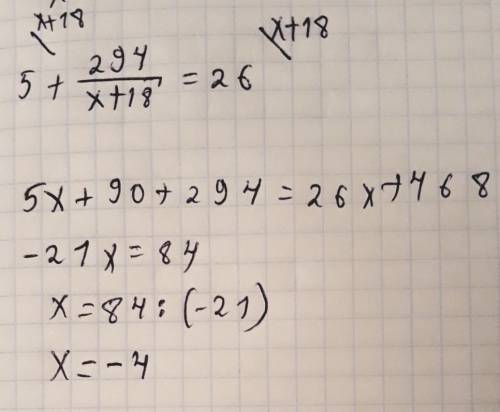 x+18 x+18
5 + 294/x+18 = 26
5x + 90 + 294 = 26x + 468
-21x = 84
x = 84 : (-21)
x = -4